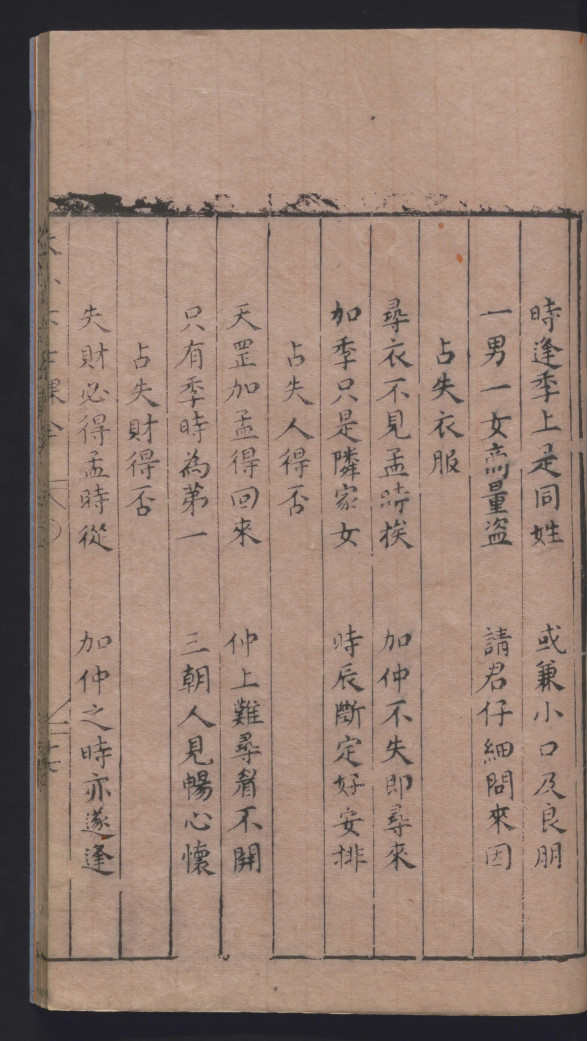 時逢季上是同姓　或兼小口及良朋
一男一女商量盜　請君仔細問來因
占失衣服
尋衣不見孟時挨　加仲不失即尋來
加季只是隣家女　時辰斷定好安排
占失人得否
天罡加孟得回來　仲上難尋眉不開
只有季時為第一　三朝人見暢心懷
占失財得否
失財必得孟時從　加仲之時亦遂逢